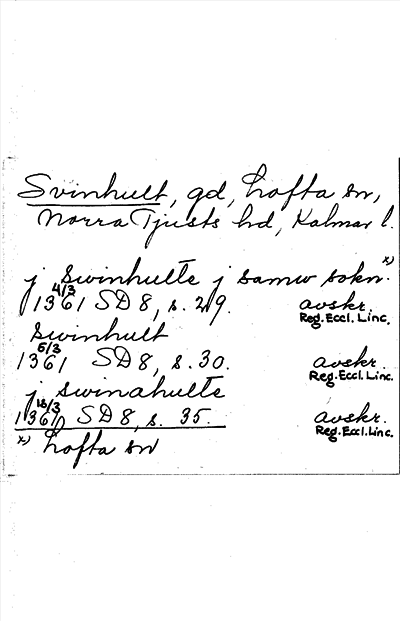 Svinhult, gd, Lofta sn,
Norra Tjusts hd, Kalmar l.
j swinhulte j samw sokn. x)
4/3
1361 SD 8, s. 29. avskr.
Reg. Eccl. Linc.
swinhult
5/3
1361 SD 8, s. 30. avskr.
Reg. Eccl. Linc.
j swinahulte
18/3
1361 SD 8, s. 35. avskr.
Reg. Eccl. Linc.
x) Lofta sn